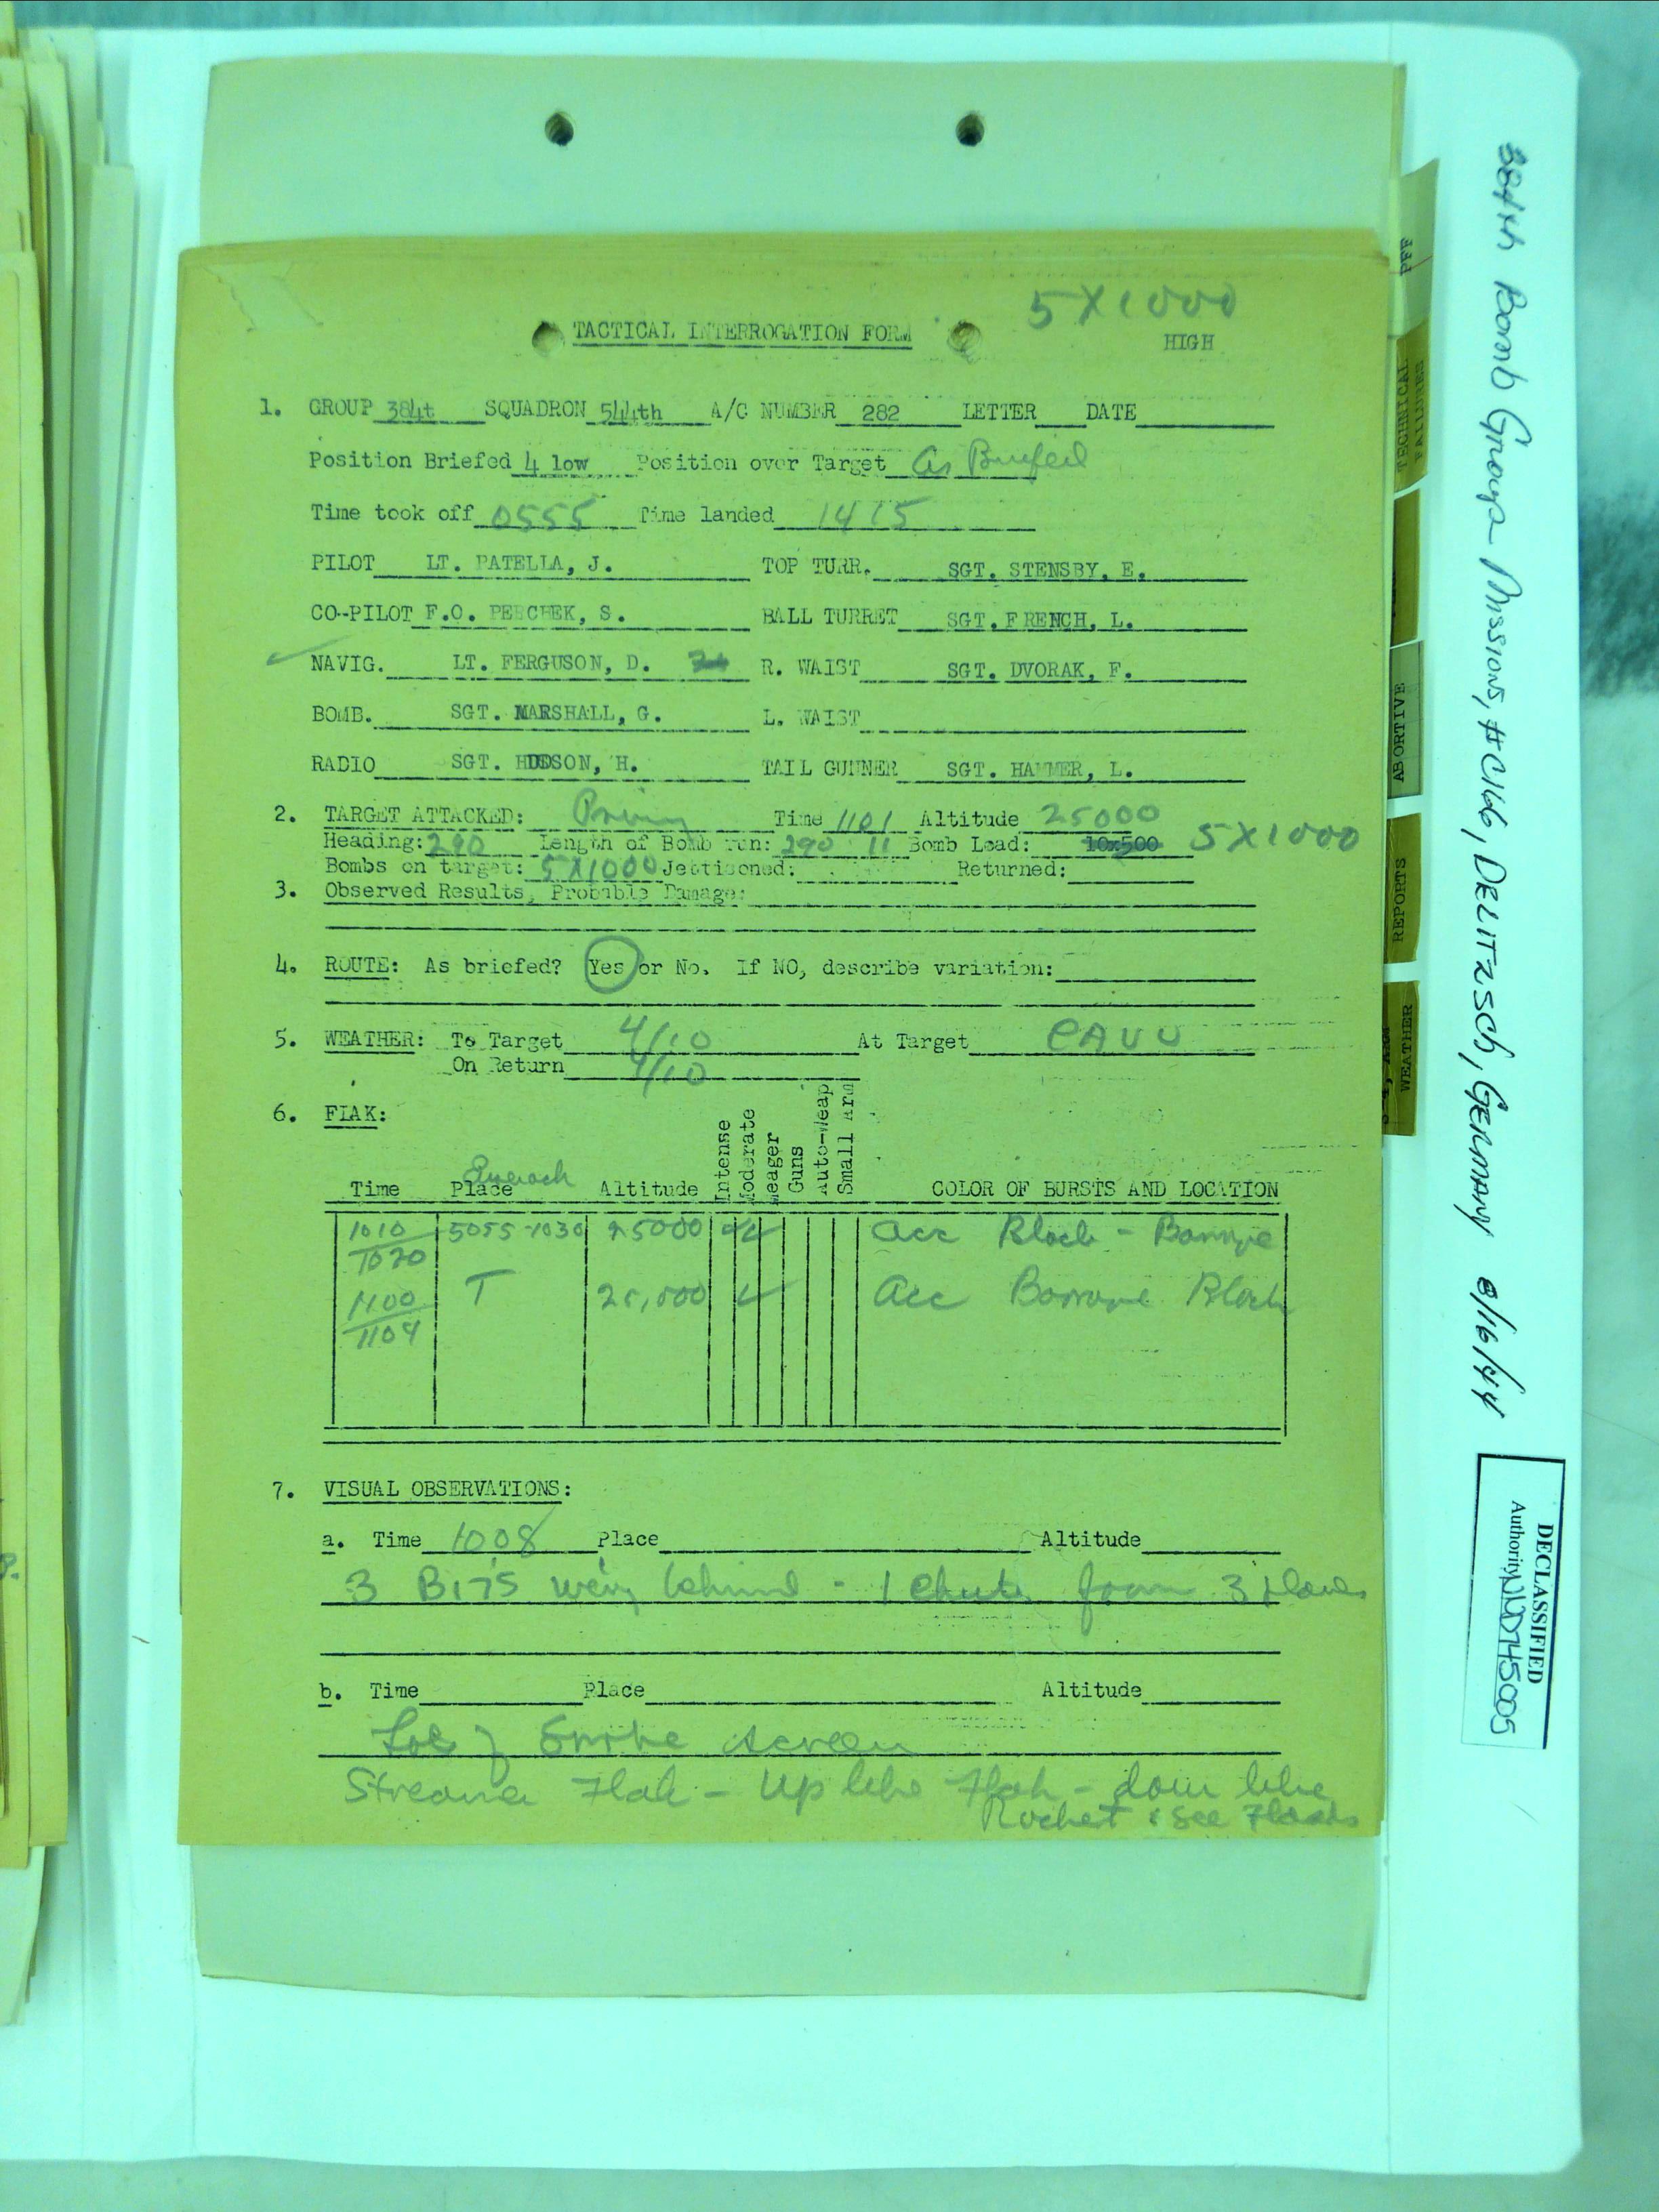 5X1000
TACTICAL INTERROGATION FORM
HIGH
1. GROUP 384t SQUADRON 544th A/C NUMBER 282 LETTER DATE
Position Briefed 4 low Position over Target As Briefed
Time took off 0555 Time landed 1415
PILOT LT. PATELLA, J. TOP TURR. SGT. STENSBY, E.
CO-PILOT F.O. PESCHEK, S. BALL TURRET SGT. FRENCH, L.
NAVIG. LT. FERGUSON, D. R. WAIST SGT. DVORAK, F.
BOMB. SGT. MARSHALL, G. L. WAIST
RADIO SGT. HUDSON, H. TAIL GUNNER SGT. HAMMER, L.
2. TARGET ATTACKED: Time 1101 Altitude 25000
Heading: 290 Length of Bomb run: 290 11 Bomb Load: 10x500 5X1000
Bombs on target: 5X1000 Jettisoned: Returned:
3. Observed Results, Probable Damage:
4. ROUTE: As briefed? Yes or No. If NO, describe variation:
5. WEATHER: To Target 4/10 At Target CAVU
On Return 4/10
6. FLAK:
Time Place Altitude Intense Moderate Meager Guns Auto-Weap Small Arm COLOR OF BURSTS AND LOCATION
1010 5055-1030 25000 Acc Black - Barrage
1020
1100 T 25,000 Acc Barrage Black
1104
7. VISUAL OBSERVATIONS:
a. Time 1008 Place Altitude
3 B17s way behind - 1 chute from 3 planes
b. Time Place Altitude
Lots of Smoke screen
Streamer Flak - Up like Flak - down like
Rocket & see Flashes
PFF
TECHNICAL FAILURES
ABORTIVE
REPORTS
WEATHER
384th Bomb Group Missions, #C166, DELITZSCH, GERMANY 8/16/44
DECLASSIFIED
Authority NND745005